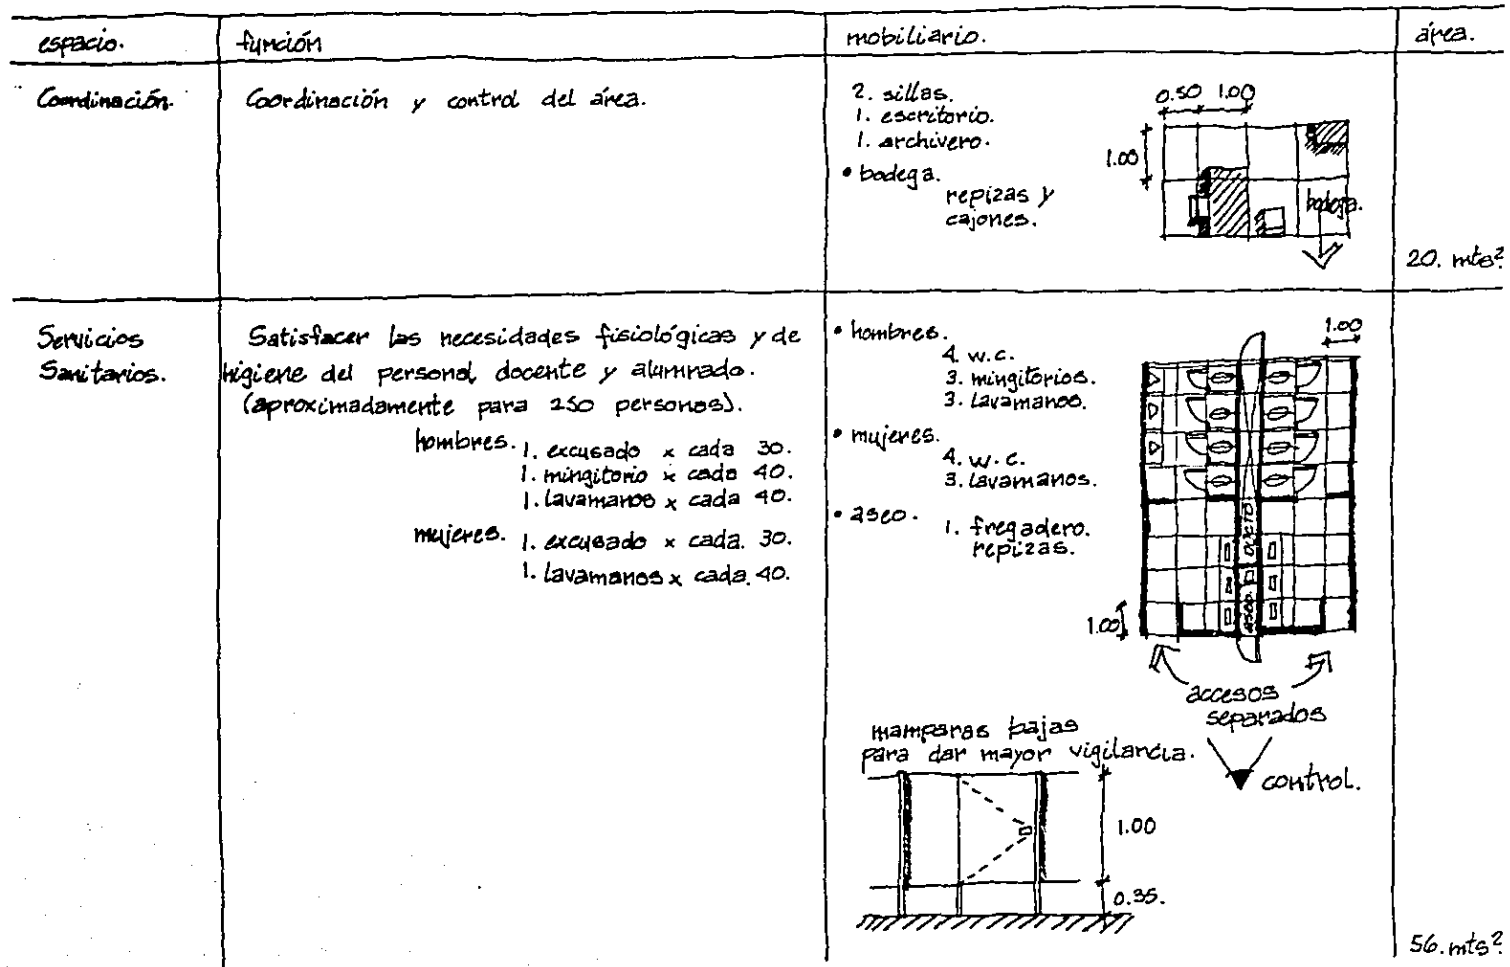 espacio.
función
mobiliario.
área.
Coordinación.
Coordinación y control del área.
2. sillas.
1. escritorio.
1. archivero.
• bodega.
repizas y
cajones.
0.50 1.00
1.00
bodega.
20. mts²
Servicios
Sanitarios.
Satisfacer las necesidades fisiológicas y de
higiene del personal docente y alumnado.
(aproximadamente para 250 personas).
hombres. 1. excusado x cada 30.
1. mingitorio x cada 40.
1. lavamanos x cada 40.
mujeres. 1. excusado x cada. 30.
1. lavamanos x cada. 40.
• hombres.
4. w.c.
3. mingitorios.
3. lavamanos.
• mujeres.
4. w.c.
3. lavamanos.
• aseo.
1. fregadero.
repizas.
1.00
DUCTO
aseo
1.00
accesos
separados
control.
mamparas bajas
para dar mayor vigilancia.
1.00
0.35.
56. mts²